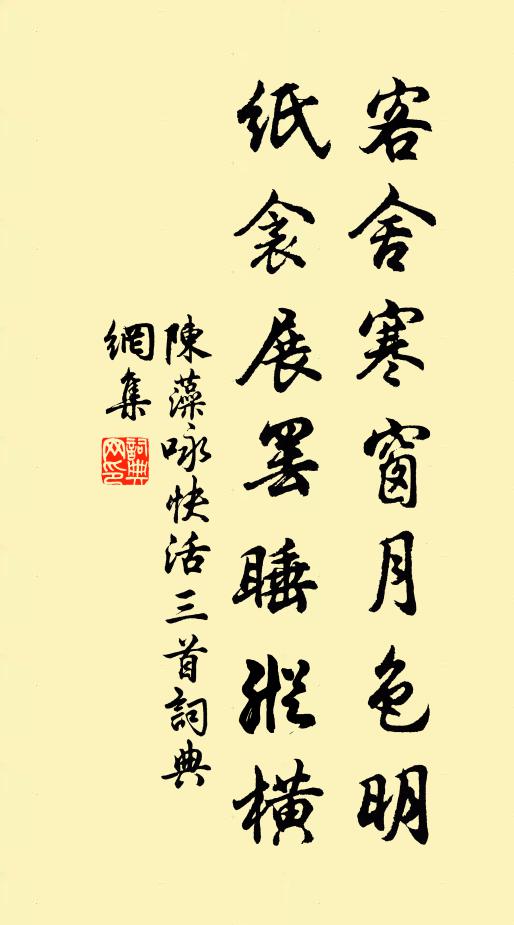 客舍寒窗月色明
紙衾展罷睡縱橫
陳藻咏快活三首詞典
網集
詞典
网印